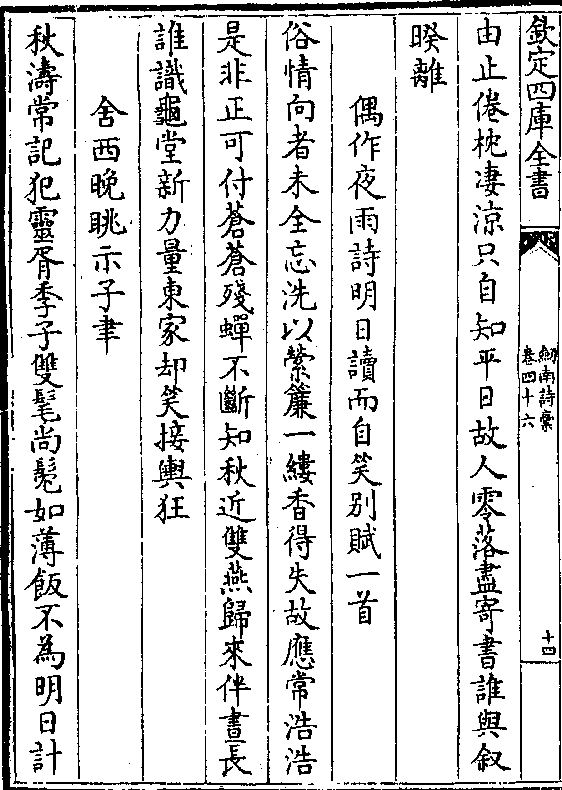 欽定四庫全書
劍南詩稾
卷四十六
十四
由止倦枕凄涼只自知平日故人零落盡寄書誰與叙
暌離
偶作夜雨詩明日讀而自笑别賦一首
俗情向者未全忘洗以縈簾一縷香得失故應常浩浩
是非正可付蒼蒼殘蟬不斷知秋近雙燕歸來伴晝長
誰識龜堂新力量東家却笑接輿狂
舍西晚眺示子聿
秋濤常記犯靈胥季子雙髦尚髧如薄飯不為明日計